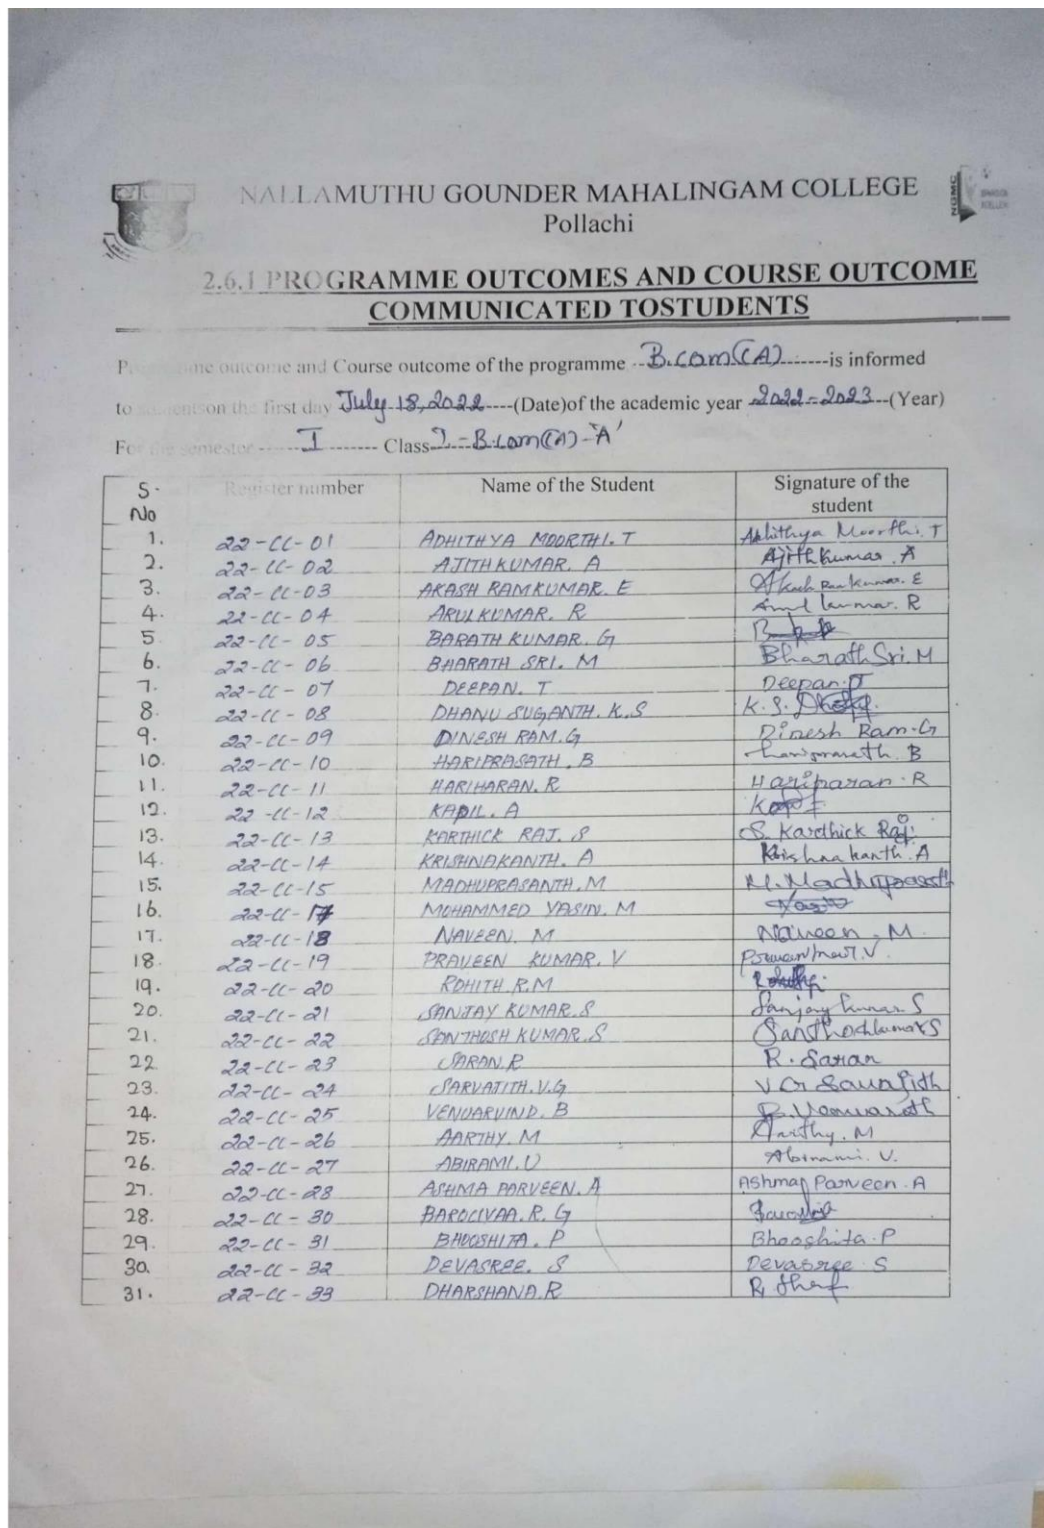 NALLAMUTHU GOUNDER MAHALINGAM COLLEGE
Pollachi
NGMC
2.6.1 PROGRAMME OUTCOMES AND COURSE OUTCOME
COMMUNICATED TOSTUDENTS
Programme outcome and Course outcome of the programme --B.com(CA)-------is informed
to studentson the first day July 18, 2022-----(Date)of the academic year -2022-2023--(Year)
For the semester ------I------- Class-I-B.com(CA)-'A'
S. No Register number Name of the Student Signature of the student
1. 22-CC-01 ADHITHYA MOORTHI. T Adhithya Moorthi. T
2. 22-CC-02 AJITHKUMAR. A Ajithkumar. A
3. 22-CC-03 AKASH RAMKUMAR. E Akash Ramkumar. E
4. 22-CC-04 ARULKUMAR. R Arul kumar. R
5. 22-CC-05 BARATH KUMAR. G
6. 22-CC-06 BHARATH SRI. M Bharath Sri. M
7. 22-CC-07 DEEPAN. T Deepan.T
8. 22-CC-08 DHANU SUGANTH. K.S K.S.
9. 22-CC-09 DINESH RAM.G Dinesh Ram.G
10. 22-CC-10 HARIPRASATH. B Hariprasath. B
11. 22-CC-11 HARIHARAN. R Hariharan. R
12. 22-CC-12 KAPIL. A
13. 22-CC-13 KARTHICK RAJ. S S. Karthick Raj.
14. 22-CC-14 KRISHNAKANTH. A Krishna kanth. A
15. 22-CC-15 MADHUPRASANTH. M M. Madhuprasanth
16. 22-CC-17 MOHAMMED YASIN. M Yasin
17. 22-CC-18 NAVEEN. M Naveen. M.
18. 22-CC-19 PRAVEEN KUMAR. V
19. 22-CC-20 ROHITH.R.M
20. 22-CC-21 SANJAY KUMAR. S Sanjay kumar. S
21. 22-CC-22 SANTHOSH KUMAR. S Santhoshkumar S
22 22-CC-23 SARAN. R R. Saran
23. 22-CC-24 SARVAJITH. V.G V G Sarvajith
24. 22-CC-25 VENUARVIND. B
25. 22-CC-26 AARTHY. M Aarthy. M
26. 22-CC-27 ABIRAMI. U Abirami. U.
27. 22-CC-28 ASHMA PARVEEN. A Ashma Parveen. A
28. 22-CC-30 BAROLIVAA. R. G
29. 22-CC-31 BHOOSHITA. P Bhooshita. P
30. 22-CC-32 DEVASREE. S Devasree S
31. 22-CC-33 DHARSHANA.R